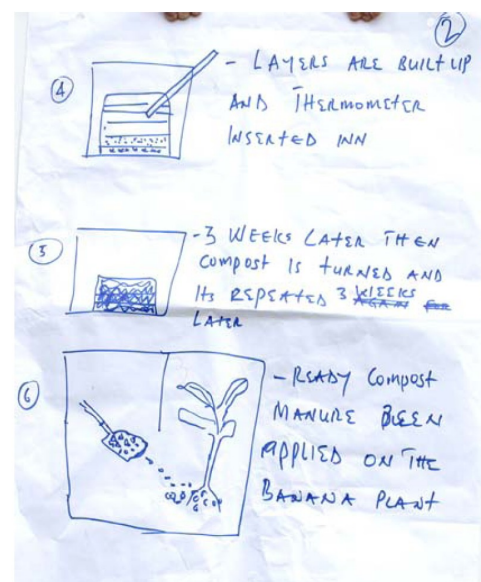 2
4
- LAYERS ARE BUILT UP
AND THERMOMETER
INSERTED INN
5
- 3 WEEKS LATER THEN
COMPOST IS TURNED AND
ITS REPEATED 3 WEEKS
LATER
6
- READY COMPOST
MANURE BEEN
APPLIED ON THE
BANANA PLANT